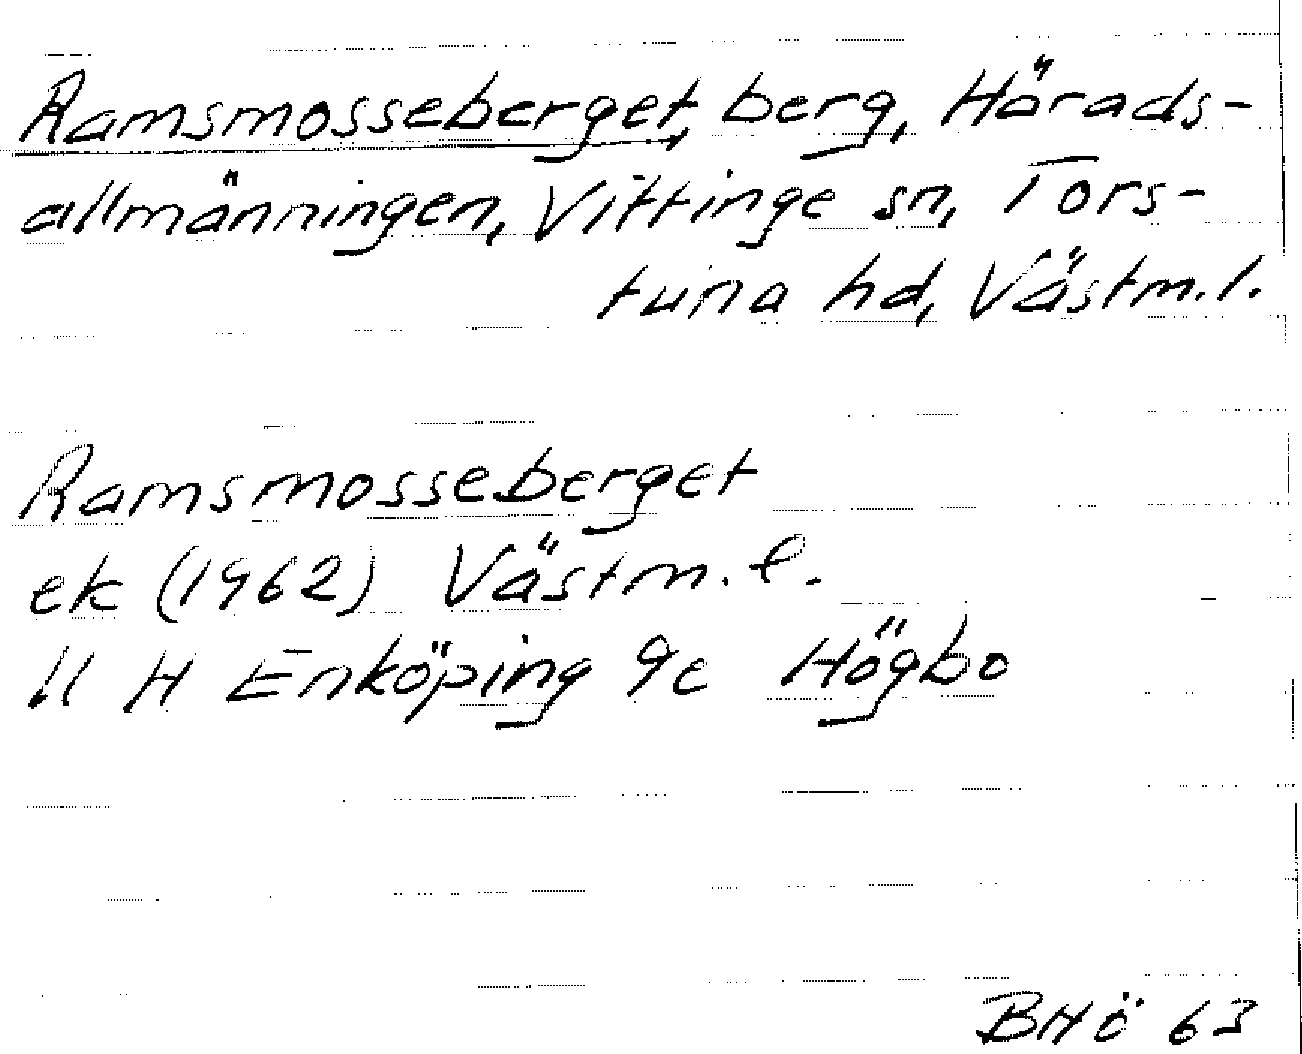 Ramsmosseberget, berg, Härads-
allmänningen, Vittinge sn, Tors-
tuna hd, Västm. l.
Ramsmosseberget
ek (1962) Västm. l.
11 H Enköping 9c Högbo
BHÖ 63